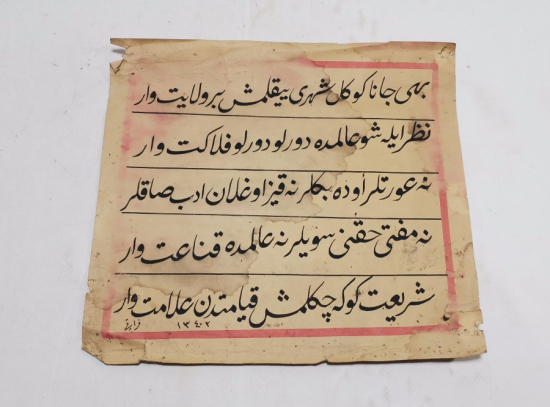 بهی جانا کوکل شهری ییقلمش بر ولایت وار
نظر ایله شو عالمده دورلو دورلو فلاکت وار
نه عورتلر اوده بکلر نه قیز اوغلان ادب صاقلر
نه مفتی حقنی سویلر نه عالمده قناعت وار
شریعت کوکه چکلمش قیامتدن علامت وار
١٣٤٢